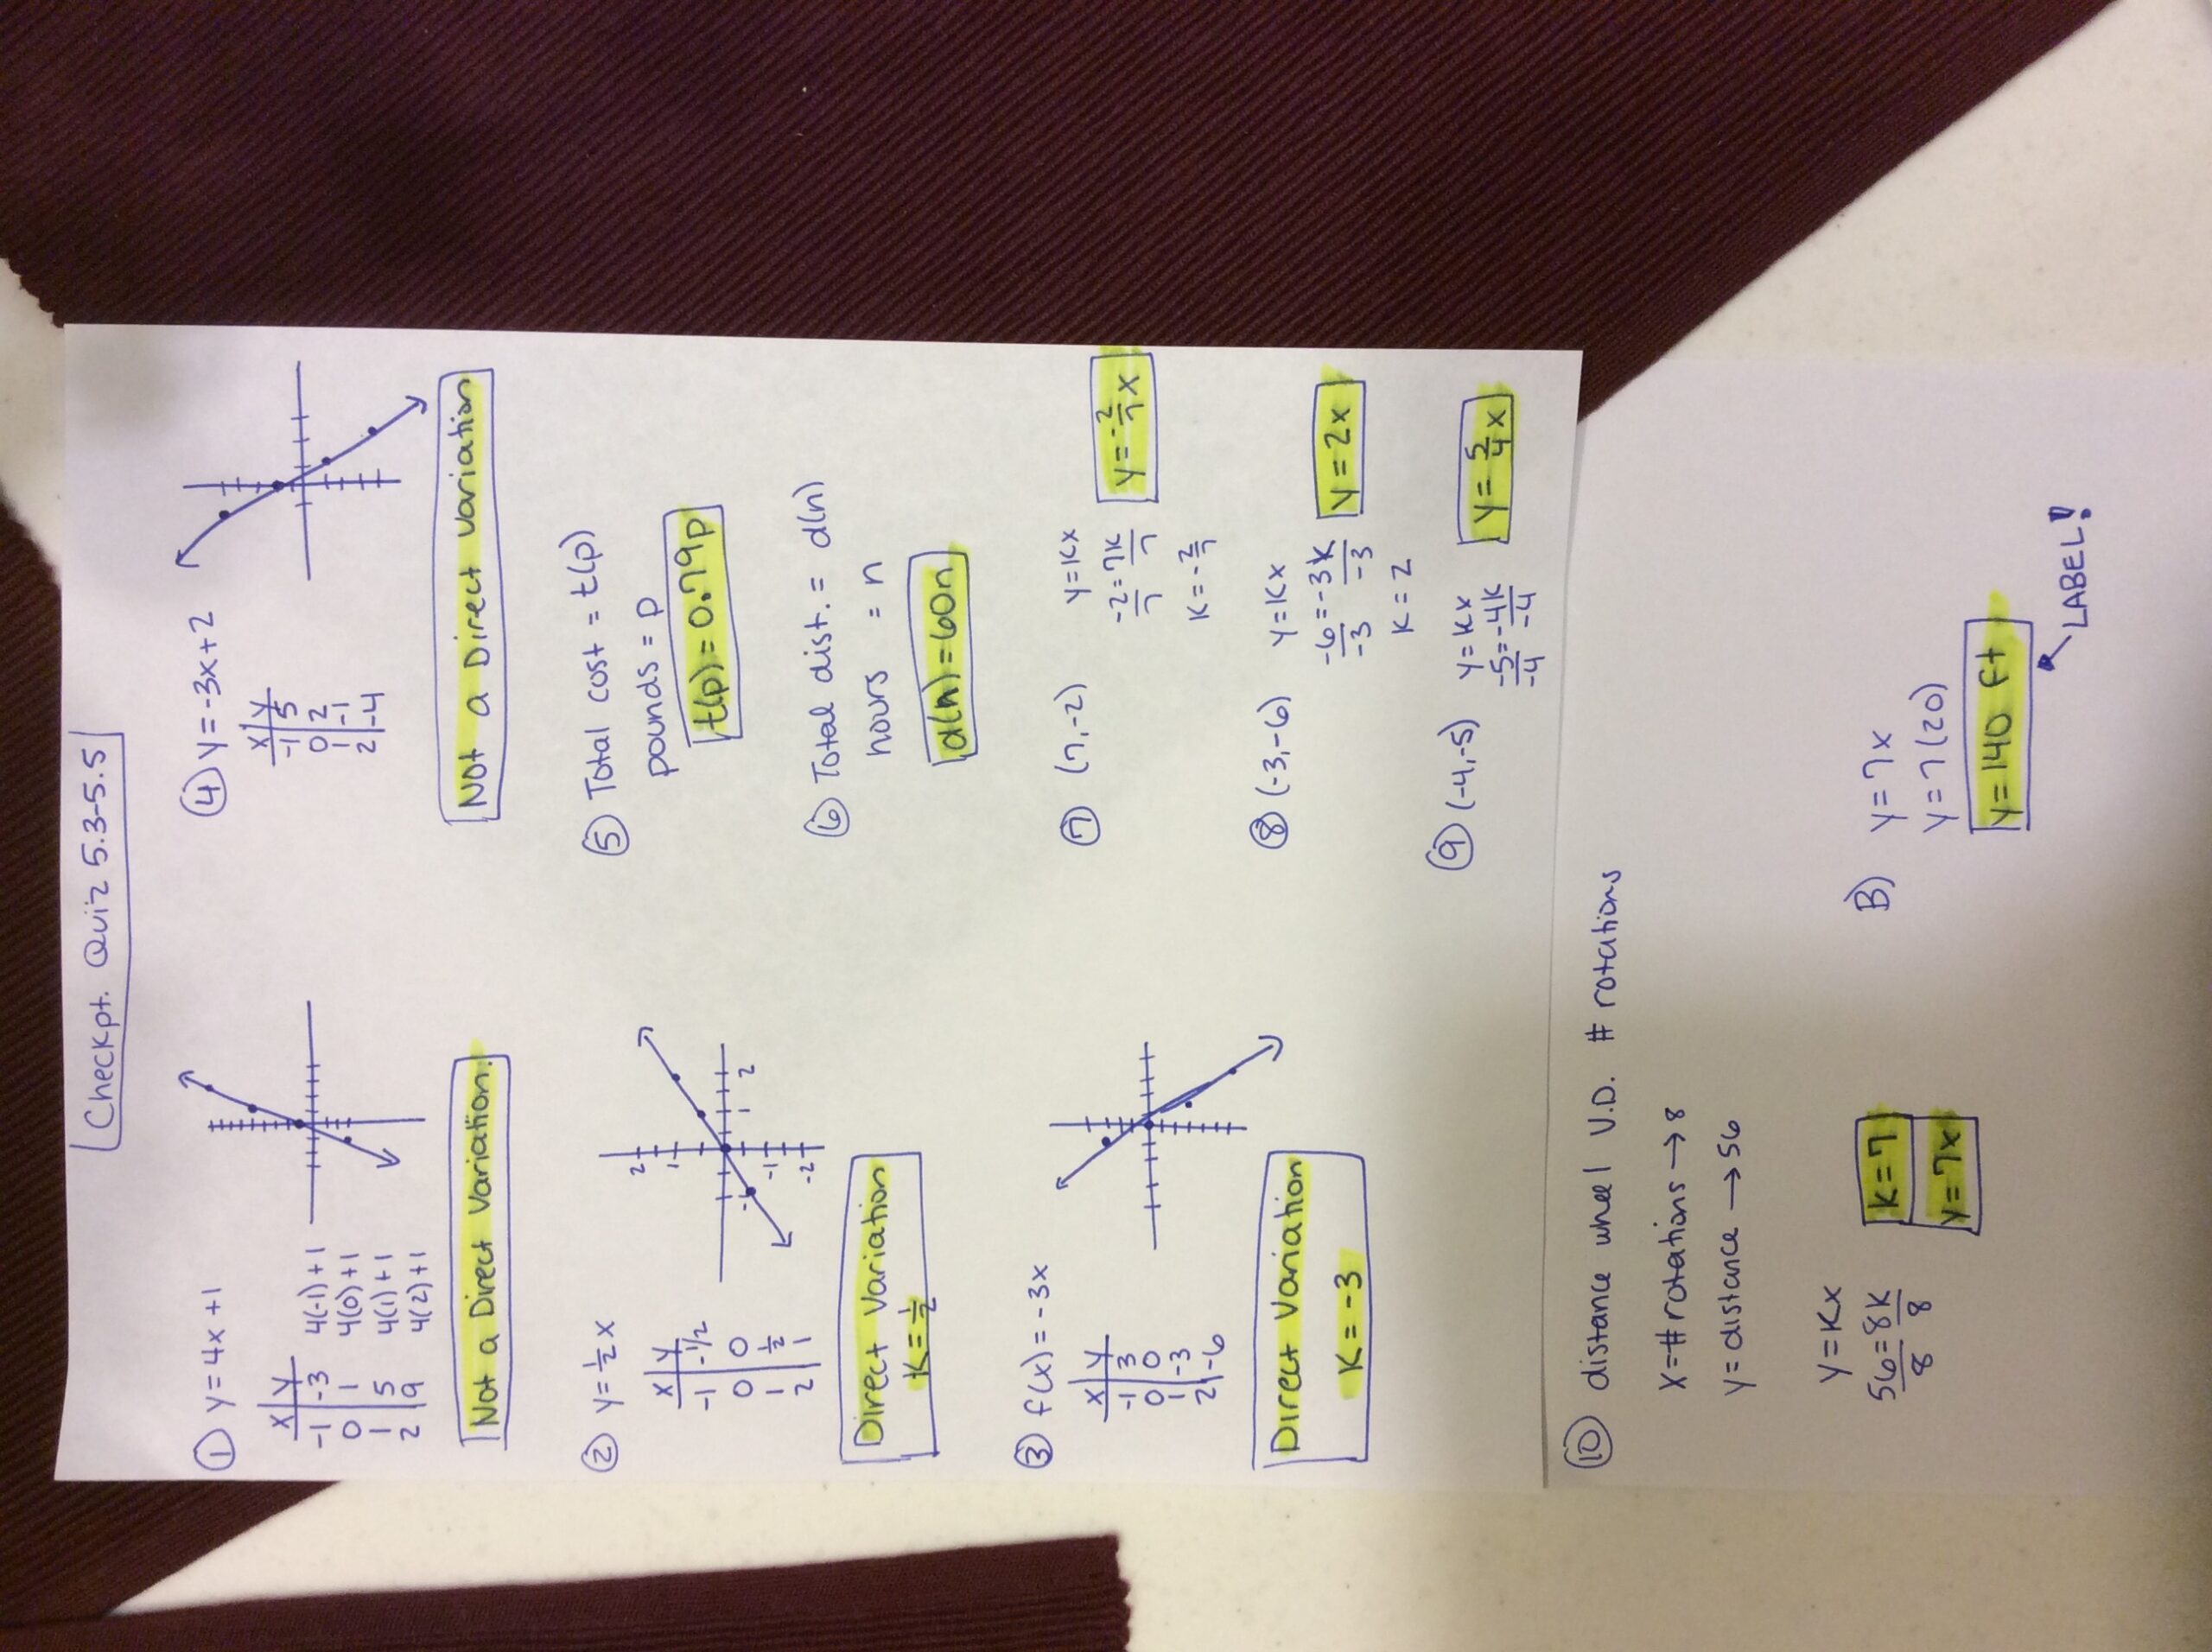 Checkpt. Quiz 5.3-5.5
① y = 4x + 1
x | y
-1 | -3 4(-1)+1
0 | 1 4(0)+1
1 | 5 4(1)+1
2 | 9 4(2)+1
Not a Direct Variation.
② y = 1/2 x
x | y
-1 | -1/2
0 | 0
1 | 1/2
2 | 1
2
1
-1
-2
-1
1
2
Direct Variation
K = 1/2
③ f(x) = -3x
x | y
-1 | 3
0 | 0
1 | -3
2 | -6
Direct Variation
K = -3
④ y = -3x+2
x | y
-1 | 5
0 | 2
1 | -1
2 | -4
Not a Direct Variation
⑤ Total cost = t(p)
pounds = p
t(p) = 0.79p
⑥ Total dist. = d(n)
hours = n
d(n) = 60n
⑦ (7,-2) y = Kx
-2/7 = 7K/7
K = -2/7
y = -2/7 x
⑧ (-3,-6) y = Kx
-6/-3 = -3K/-3
K = 2
y = 2x
⑨ (-4,-5) y = Kx
-5/-4 = -4K/-4
y = 5/4 x
⑩ distance wheel V.D. # rotations
X = # rotations → 8
y = distance → 56
y = Kx
56/8 = 8K/8
K = 7
y = 7x
B) y = 7x
y = 7(20)
y = 140 ft
LABEL!